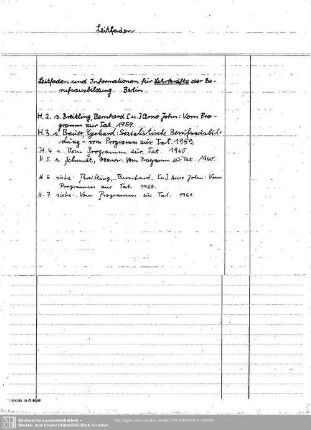 Leitfaden
Leitfaden und Informationen für Lehrkräfte der Be-
rufsausbildung. Berlin.
H. 2. s. Breitling, Bernhard [u.] Arno John: Vom Pro-
gramm zur Tat. 1959.
H. 3. s. Gerhard: Sozialistische Berufsausbil-
dung - vom Programm zur Tat. 1959.
H. 4. s. Vom Programm zur Tat. 1960.
H. 5. s. Schmidt, Werner: Vom Programm zur Tat. 1960.
H. 6 siehe: Breitling, Bernhard [u.] Arno John: Vom
Programm zur Tat. 1960.
H. 7. siehe: Vom Programm zur Tat. 1961.